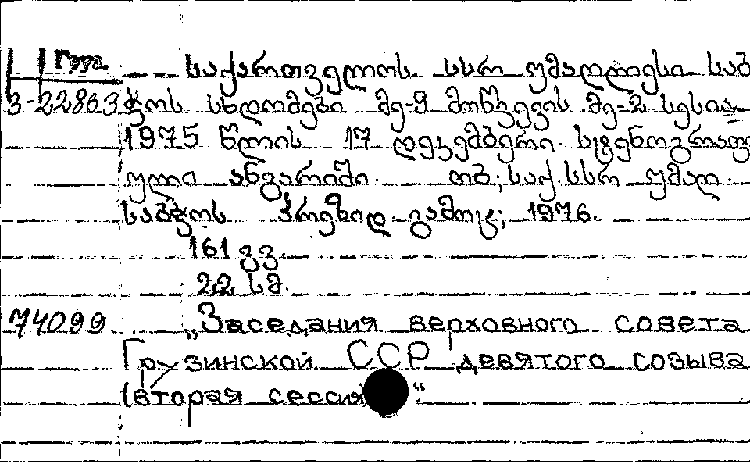 Груз.
საქართველოს სსრ უმაღლესი საბ
3-22863 ჭოს სხდომები მე-9 მოწვევის მე-2 სესია
1975 წლის 17 დეკემბერი. სტენოგრაფ
ული ანგარიში. თბ., საქ. სსრ უმაღ.
საბჭოს პრეზიდ. გამოც., 1976.
161 გვ.
22 სმ.
74099 „Заседания верховного совета
Грузинской ССР девятого созыва
(вторая сессия) “